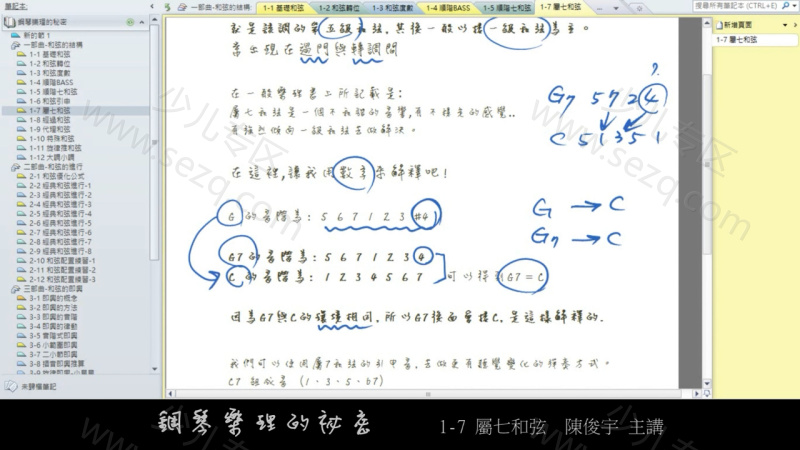 筆記本
鋼琴樂理的秘密
新的節 1
一部曲-和弦的結構
1-1 基礎和弦
1-2 和弦轉位
1-3 和弦度數
1-4 順階BASS
1-5 順階七和弦
1-6 和弦引申
1-7 屬七和弦
1-8 經過和弦
1-9 代理和弦
1-10 特殊和弦
1-11 旋律推和弦
1-12 大調小調
二部曲-和弦的進行
2-1 和弦優化公式
2-2 經典和弦進行-1
2-3 經典和弦進行-2
2-4 經典和弦進行-3
2-5 經典和弦進行-4
2-6 經典和弦進行-5
2-7 經典和弦進行-6
2-8 經典和弦進行-7
2-9 經典和弦進行-8
2-10 和弦配置練習-1
2-11 和弦配置練習-2
2-12 和弦配置練習-3
三部曲-和弦的即興
3-1 即興的概念
3-2 即興的方法
3-3 即興的音階
3-4 即興的律動
3-5 音階式即興
3-6 小範圍即興
3-7 二小節即興
3-8 插音即興推算
未歸檔筆記
一部曲-和弦的結構
1-1 基礎和弦
1-2 和弦轉位
1-3 和弦度數
1-4 順階BASS
1-5 順階七和弦
1-7 屬七和弦
搜尋所有筆記本 (CTRL+E)
新增頁面
1-7 屬七和弦
就是該調的第五級和弦,其後一般以接一級和弦為主。
常出現在過門與轉調間
在一般樂理書上所記載是:
屬七和弦是一個不和諧的音響,有不穩定的感覺..
有強烈傾向一級和弦去做解決。
在這裡,讓我用數字來解釋吧!
G 的音階為: 5 6 7 1 2 3 #4
G7 的音階為: 5 6 7 1 2 3 4
C 的音階為: 1 2 3 4 5 6 7
可以得到G7 = C
因為G7與C的環境相同,所以G7後面會接C,是這樣解釋的.
我們可以使用屬7和弦的引申音,去做更有聽覺變化的彈奏方式。
C7 組成音 (1、3、5、b7)
?
G7 5 7 2 4
C 5 1 3 5 1
G → C
G7 → C
少儿专区
www.sezq.com
鋼琴樂理的祕密
1-7 屬七和弦 陳俊宇 主講